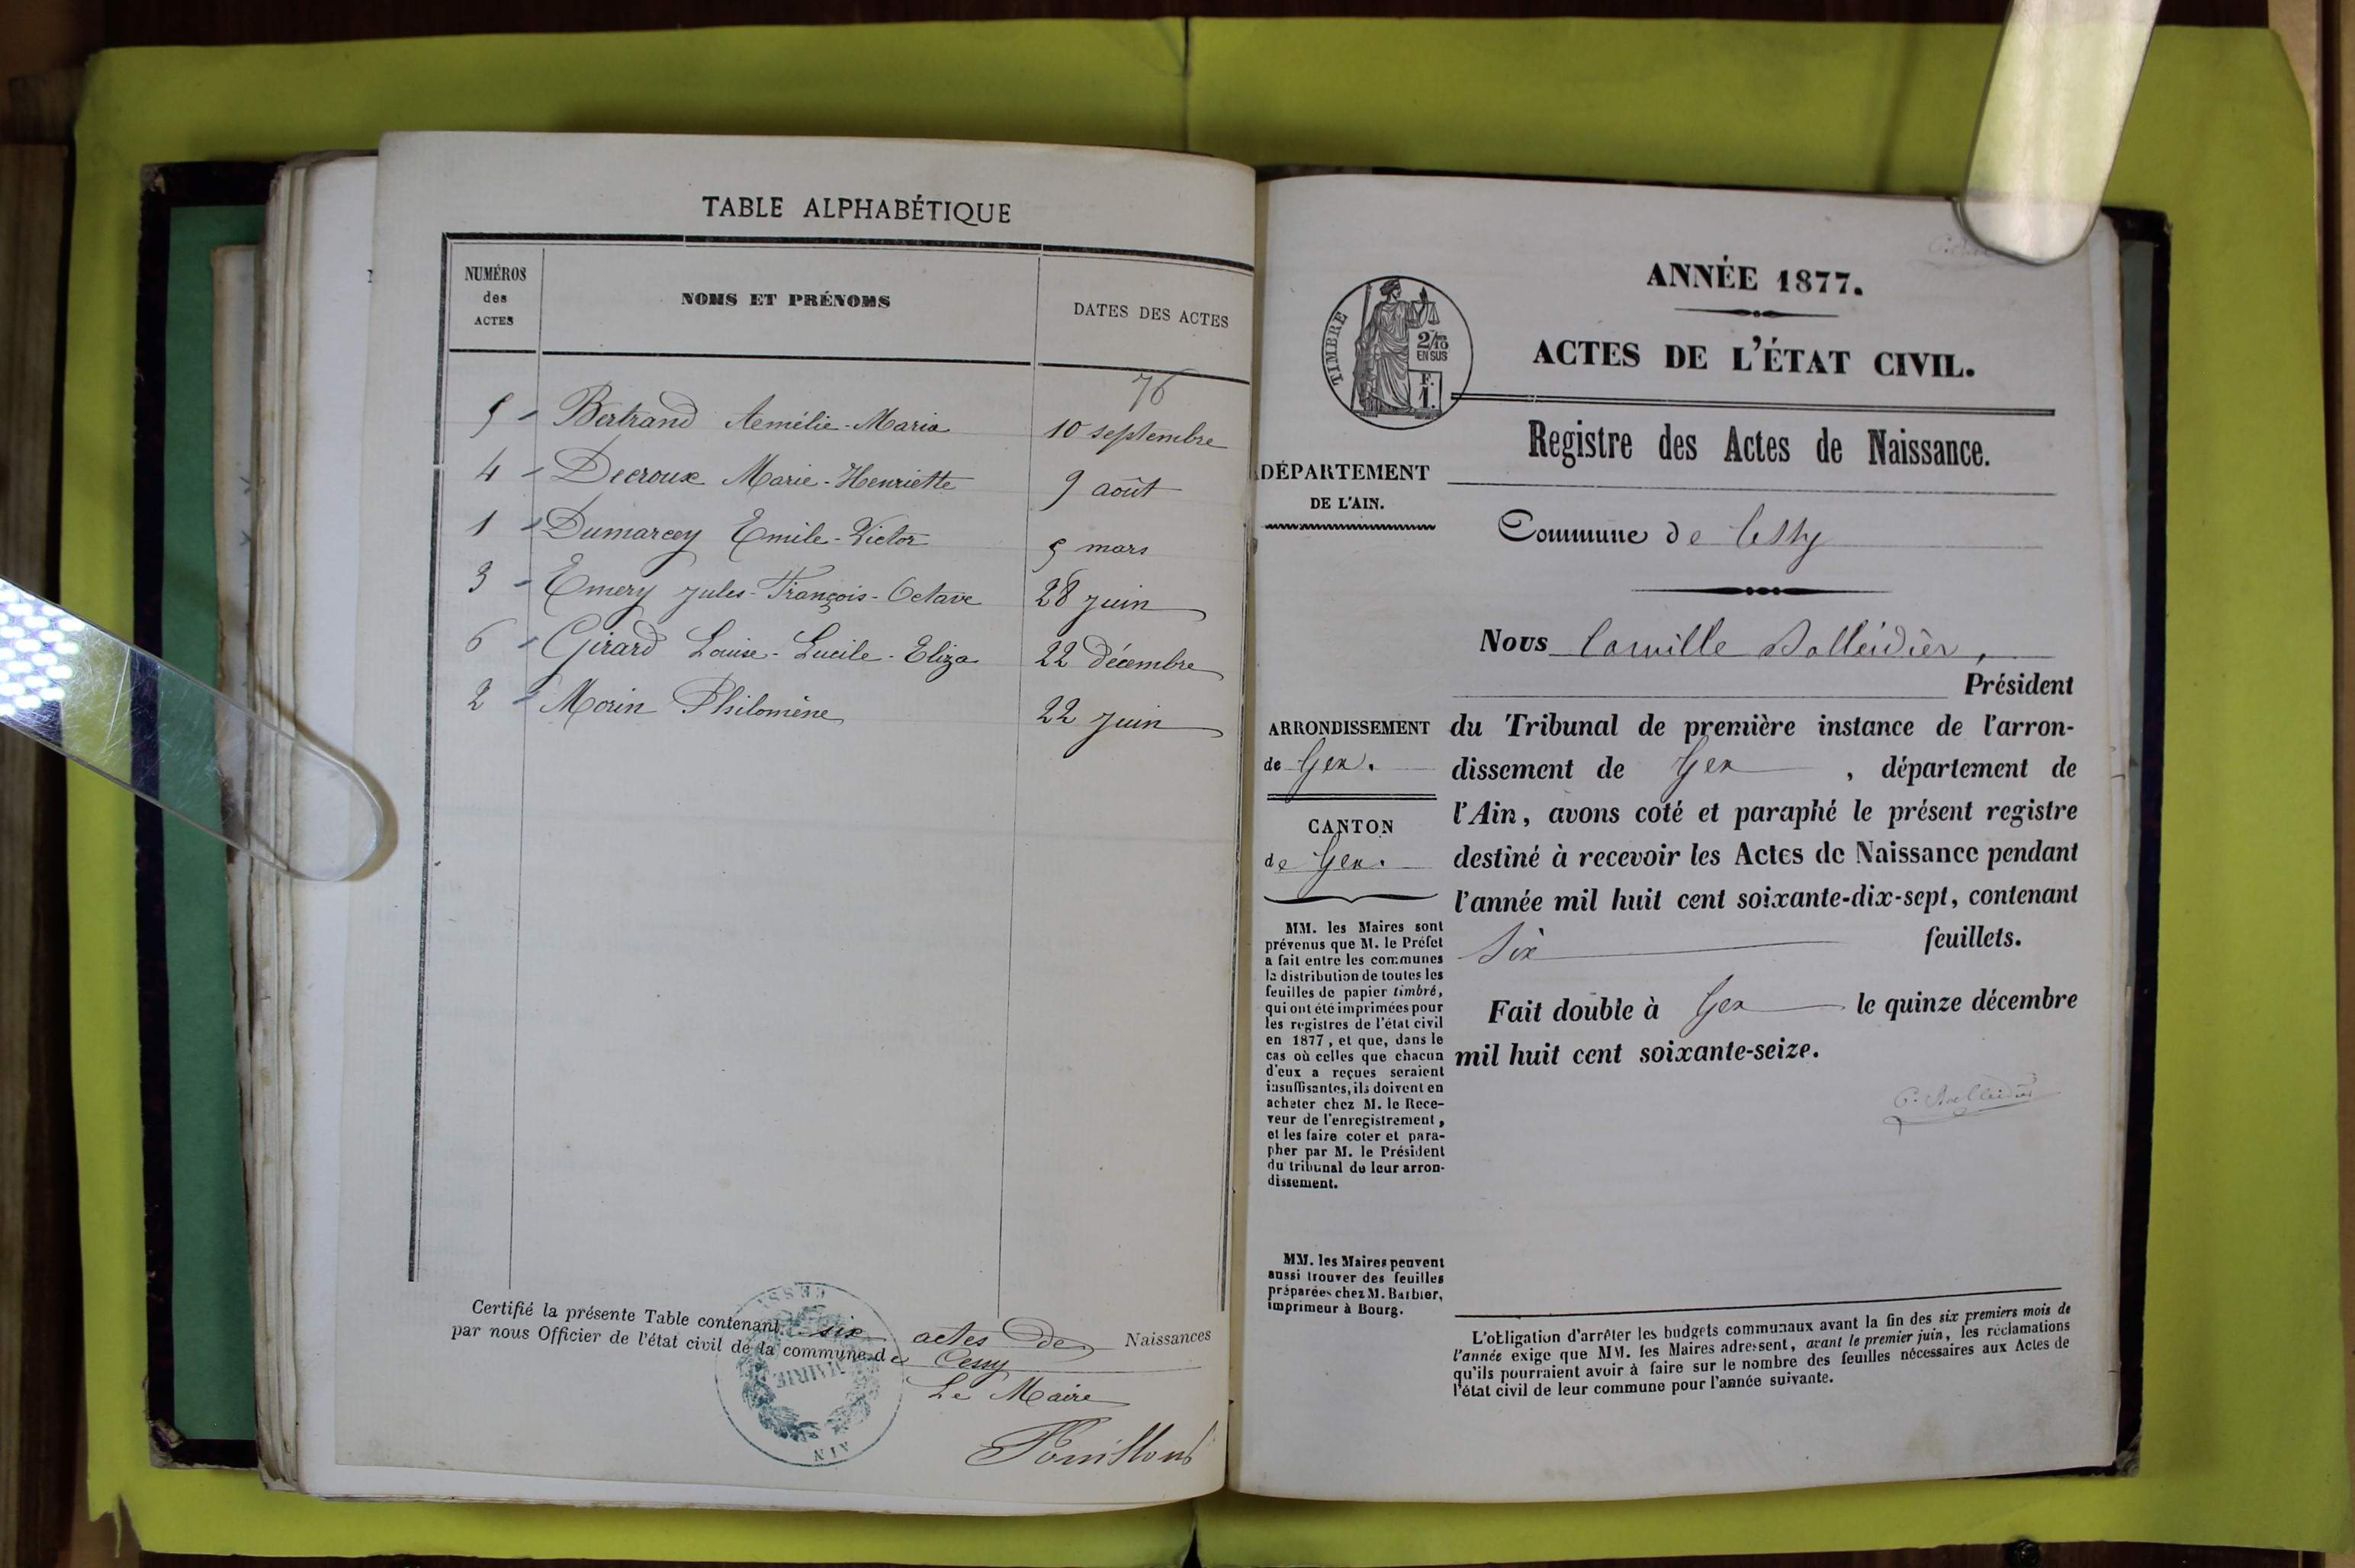 TABLE ALPHABÉTIQUE
NUMÉROS
des
ACTES
NOMS ET PRÉNOMS
DATES DES ACTES
76
5 - Bertrand Aemélie-Maria 10 septembre
4 - Decroux Marie-Henriette 9 août
1 - Dumarcey Emile-Victor 5 mars
3 - Emery Jules-François-Octave 28 juin
6 - Girard Louise-Lucile-Eliza 22 décembre
2 - Morin Philomène 22 juin
Certifié la présente Table contenant six actes de Naissances
par nous Officier de l'état civil de la commune de Cessy
Le Maire
CESSY
MAIRIE
AIN
ANNÉE 1877.
TIMBRE
2/10
EN SUS
F.
1.
ACTES DE L'ÉTAT CIVIL.
Registre des Actes de Naissance.
DÉPARTEMENT
DE L'AIN.
Commune de Cessy
Nous Camille Balleidier,
Président
du Tribunal de première instance de l'arron-
dissement de Gex, département de
l'Ain, avons coté et paraphé le présent registre
destiné à recevoir les Actes de Naissance pendant
l'année mil huit cent soixante-dix-sept, contenant
Six feuillets.
Fait double à Gex le quinze décembre
mil huit cent soixante-seize.
C. Balleidier
ARRONDISSEMENT
de Gex.
CANTON
de Gex.
MM. les Maires sont
prévenus que M. le Préfet
a fait entre les communes
la distribution de toutes les
feuilles de papier timbré,
qui ont été imprimées pour
les registres de l'état civil
en 1877, et que, dans le
cas où celles que chacun
d'eux a reçues seraient
insuffisantes, ils doivent en
acheter chez M. le Rece-
veur de l'enregistrement,
et les faire coter et para-
pher par M. le Président
du tribunal de leur arron-
dissement.
MM. les Maires peuvent
aussi trouver des feuilles
préparées chez M. Barbier,
imprimeur à Bourg.
L'obligation d'arrêter les budgets communaux avant la fin des six premiers mois de
l'année exige que MM. les Maires adressent, avant le premier juin, les réclamations
qu'ils pourraient avoir à faire sur le nombre des feuilles nécessaires aux Actes de
l'état civil de leur commune pour l'année suivante.